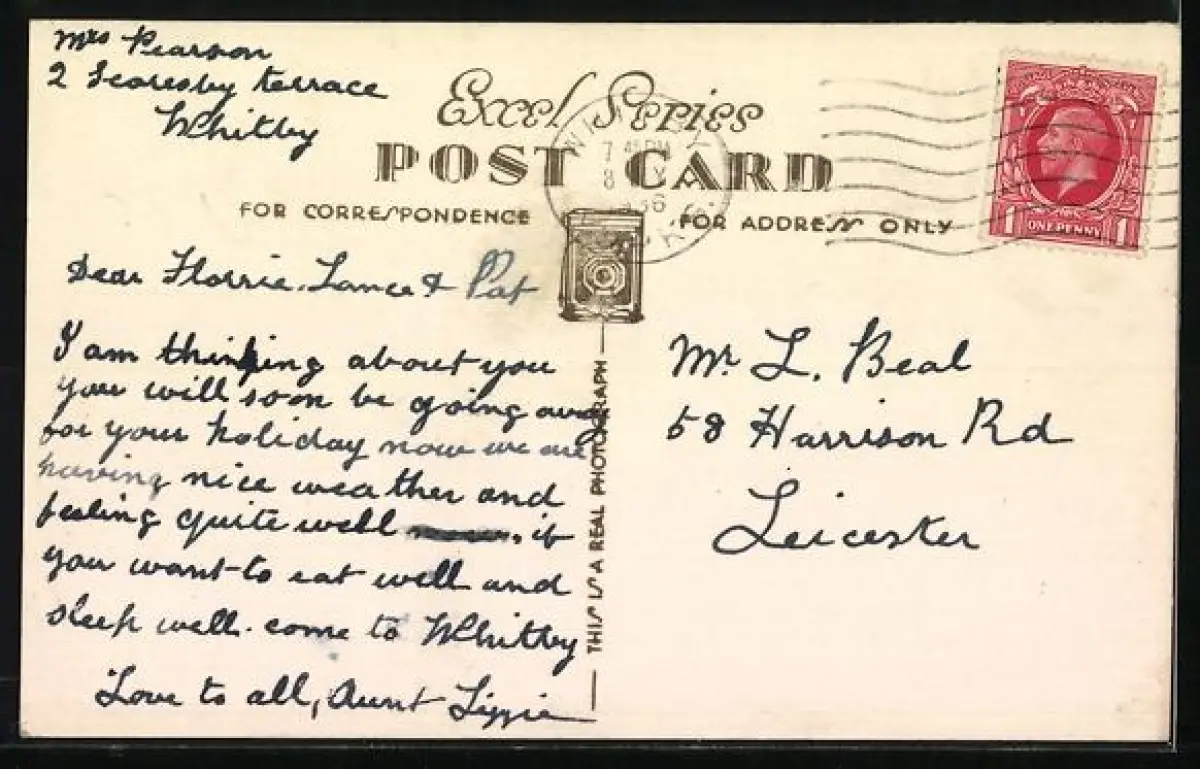 Mrs Pearson
2 Scoresby terrace
Whitby
Excel Series
POST CARD
FOR CORRESPONDENCE
FOR ADDRESS ONLY
WHITBY
7 45 PM
8
1936
ONE PENNY
1 1
Dear Florrie, Lance & Pat
I am thinking about you
you will soon be going away
for your holiday now we are
having nice weather and
feeling quite well if
you want to eat well and
sleep well. come to Whitby
Love to all, Aunt Lizzie
THIS IS A REAL PHOTOGRAPH
Mr L. Beal
58 Harrison Rd
Leicester